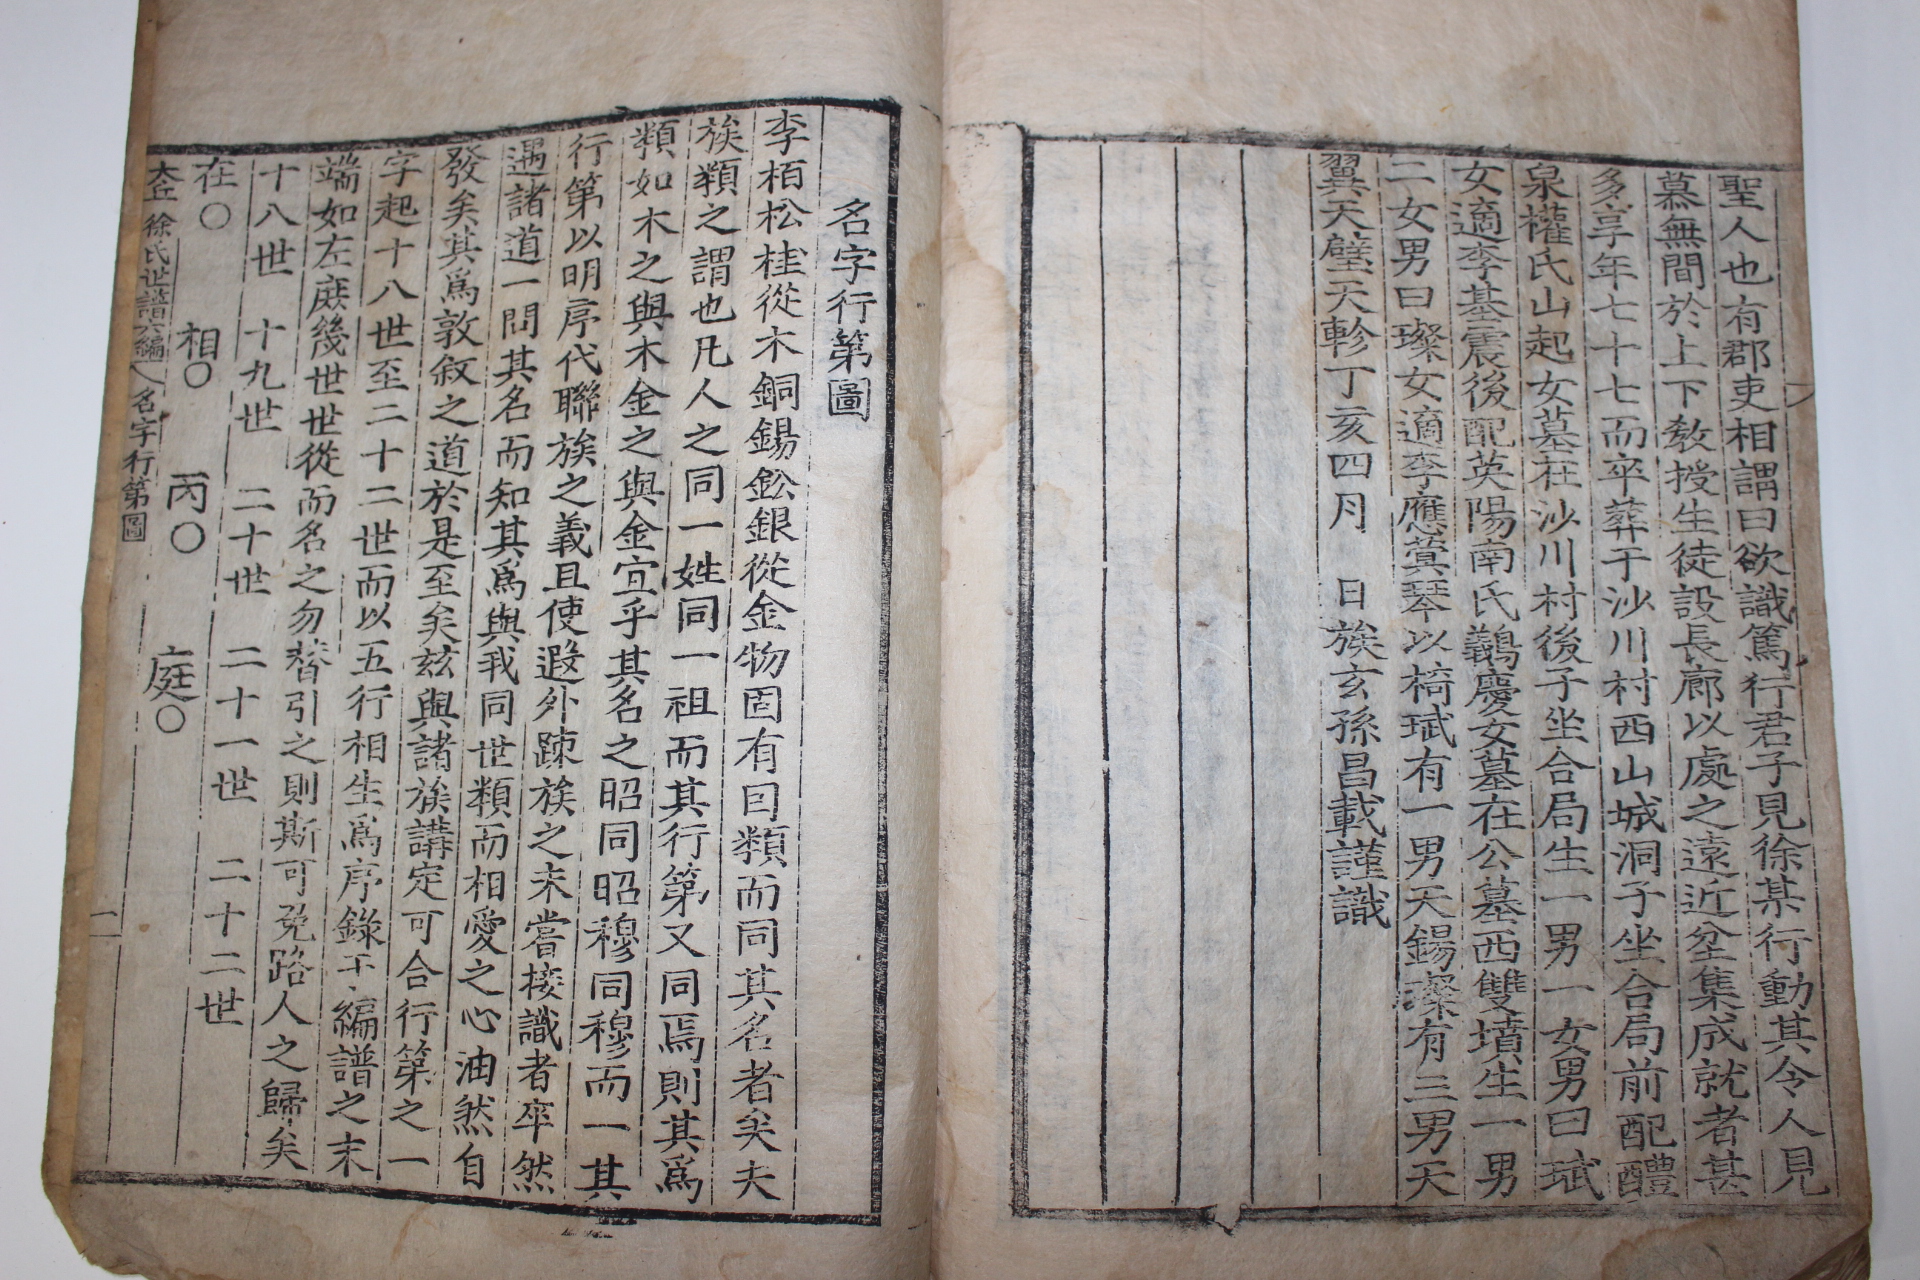 聖人也有郡吏相謂曰欲識篤行君子見徐某行動其令人見
慕無間於上下敎授生徒設長廊以處之遠近坌集成就者甚
多享年七十七而卒葬于沙川村西山城洞子坐合局前配醴
泉權氏山起女墓在沙川村後子坐合局生一男一女男曰珷
女適李基震後配英陽南氏鸃慶女墓在公墓西雙墳生一男
二女男曰璨女適李應蓂琴以椅珷有一男天錫璨有三男天
翼天璧天軫丁亥四月 日族玄孫昌載謹識
名字行第圖
李栢松桂從木銅錫鈆銀從金物固有曰類而同其名者矣夫
族類之謂也凡人之同一姓同一祖而其行第又同焉則其爲
類如木之與木金之與金宜乎其名之昭同昭穆同穆而一其
行第以明序代聯族之義且使遐外踈族之未嘗接識者卒然
遇諸道一問其名而知其爲與我同世類而相愛之心油然自
發矣其爲敦敘之道於是至矣玆與諸族講定可合行第之一
字起十八世至二十二世而以五行相生爲序錄于編譜之末
端如左庶幾世世從而名之勿替引之則斯可免路人之歸矣
十八世 十九世 二十世 二十一世 二十二世
在〇 相〇 丙〇 庭〇
大丘徐氏世譜六編 名字行第圖 二